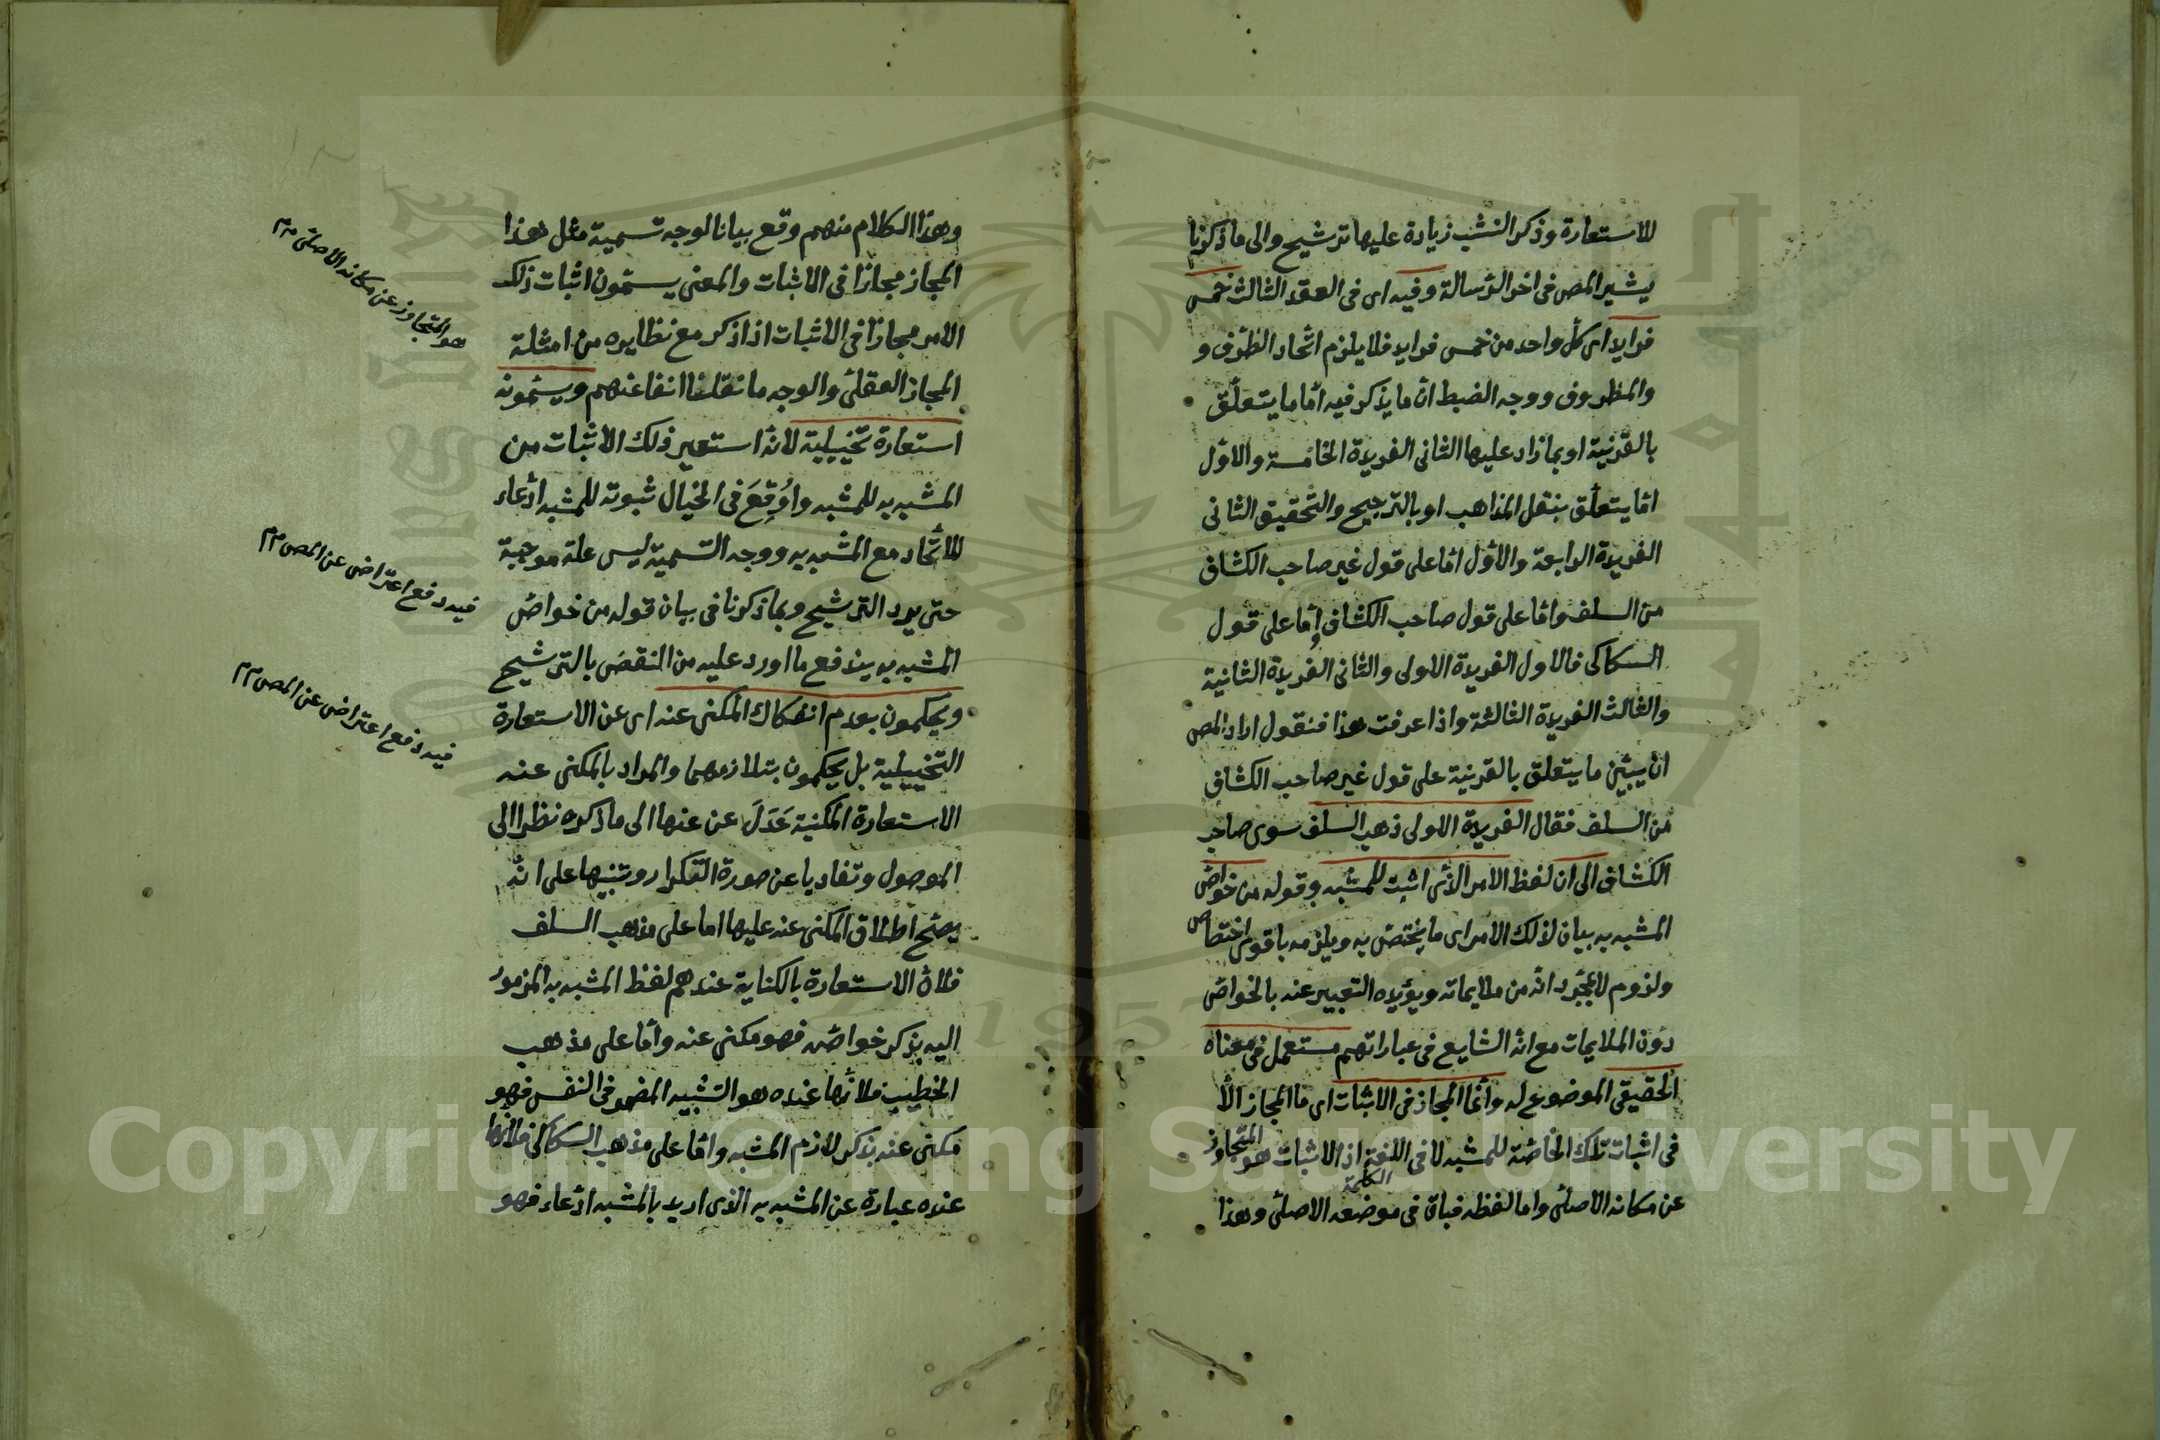 للاستعارة وذكر النشب زيادة عليها ترشيح والى ما ذكرنا
يشير المص فى اخر الرسالة وفيه اى فى العقد الثالث خمس
فرايد اى كل واحد من خمس فرايد فلا يلزم اتحاد الظرف و
والمظروف ووجه الضبط ان ما يذكر فيه اما ما يتعلق
بالقرينة او بما زاد عليها الثانى الفريدة الخامسة والاول
اما يتعلق بنقل المذاهب او بالترجيح والتحقيق الثانى
الفريدة الرابعة والاول اما على قول غير صاحب الكشاف
من السلف واما على قول صاحب الكشاف واما على قول
السكاكى فالاول الفريدة الاولى والثانى الفريدة الثانية
والثالث الفريدة الثالثة واذا عرفت هذا فنقول اراد المص
ان يبين ما يتعلق بالقرينة على قول غير صاحب الكشاف
من السلف فقال الفريدة الاولى ذهب السلف سوى صاحب
الكشاف الى ان لفظ الامر الذى اثبت للمشبه وقوله من خواص
المشبه به بيان لذلك الامر اى ما يختص به ويلزمه باقوى اختصاص
ولزوم لا بمجرد انه من ملايماته ويؤيده التعبير عنه بالخواص
دون الملايمات مع انه الشايع فى عباراتهم مستعمل فى معناه
الحقيقى الموضوع له وانما المجاز فى الاثبات اى ما المجاز الا
فى اثبات تلك الخاصة للمشبه لا فى اللغة اذ الاثبات هو المتجاوز
الكلمة
عن مكانه الاصلى واما لفظه فباق فى موضعه الاصلى وهذا
وهذا الكلام منهم وقع بيانا لوجه تسمية مثل هذا
المجاز مجازا فى الاثبات والمعنى يسمون اثبات ذلك
الامر مجازا فى الاثبات اذا ذكر مع نظايره من امثلة
المجاز العقلى والوجه ما نقلنا انفا عنهم ويسمونه
استعارة تخييلية لانه استعير ذلك الاثبات من
المشبه به للمشبه واوقع فى الخيال ثبوته للمشبه ادعاء
للاتحاد مع المشبه به ووجه التسمية ليس علة موجبة
حتى يرد الترشيح وبما ذكرنا فى بيان قوله من خواص
المشبه به يندفع ما اورد عليه من النقض بالترشيح
ويحكمون بعدم انفكاك المكنى عنه اى عن الاستعارة
التخييلية بل يحكمون بتلازمهما والمراد بالمكنى عنه
الاستعارة المكنية عدل عن عنها الى ما ذكره نظرا الى
الموصول وتفاديا عن صورة التكرار وتنبيها على انه
يصح اطلاق المكنى عنه عليها اما على مذهب السلف
فلان الاستعارة بالكناية عندهم لفظ المشبه به المرموز
اليه بذكر خواصه فهو مكنى عنه واما على مذهب
الخطيب فلانها عنده هو التشبيه المضمر فى النفس فهو
مكنى عنه بذكر لازم المشبه واما على مذهب السكاكى فلانها
عنده عبارة عن المشبه به الذى اريد بالمشبه ادعاء فهو
هو المتجاوز عن مكانه الاصلى
فيه دفع اعتراض عن المص
فيه دفع اعتراض عن المص
1957
Copyright © King Saud University